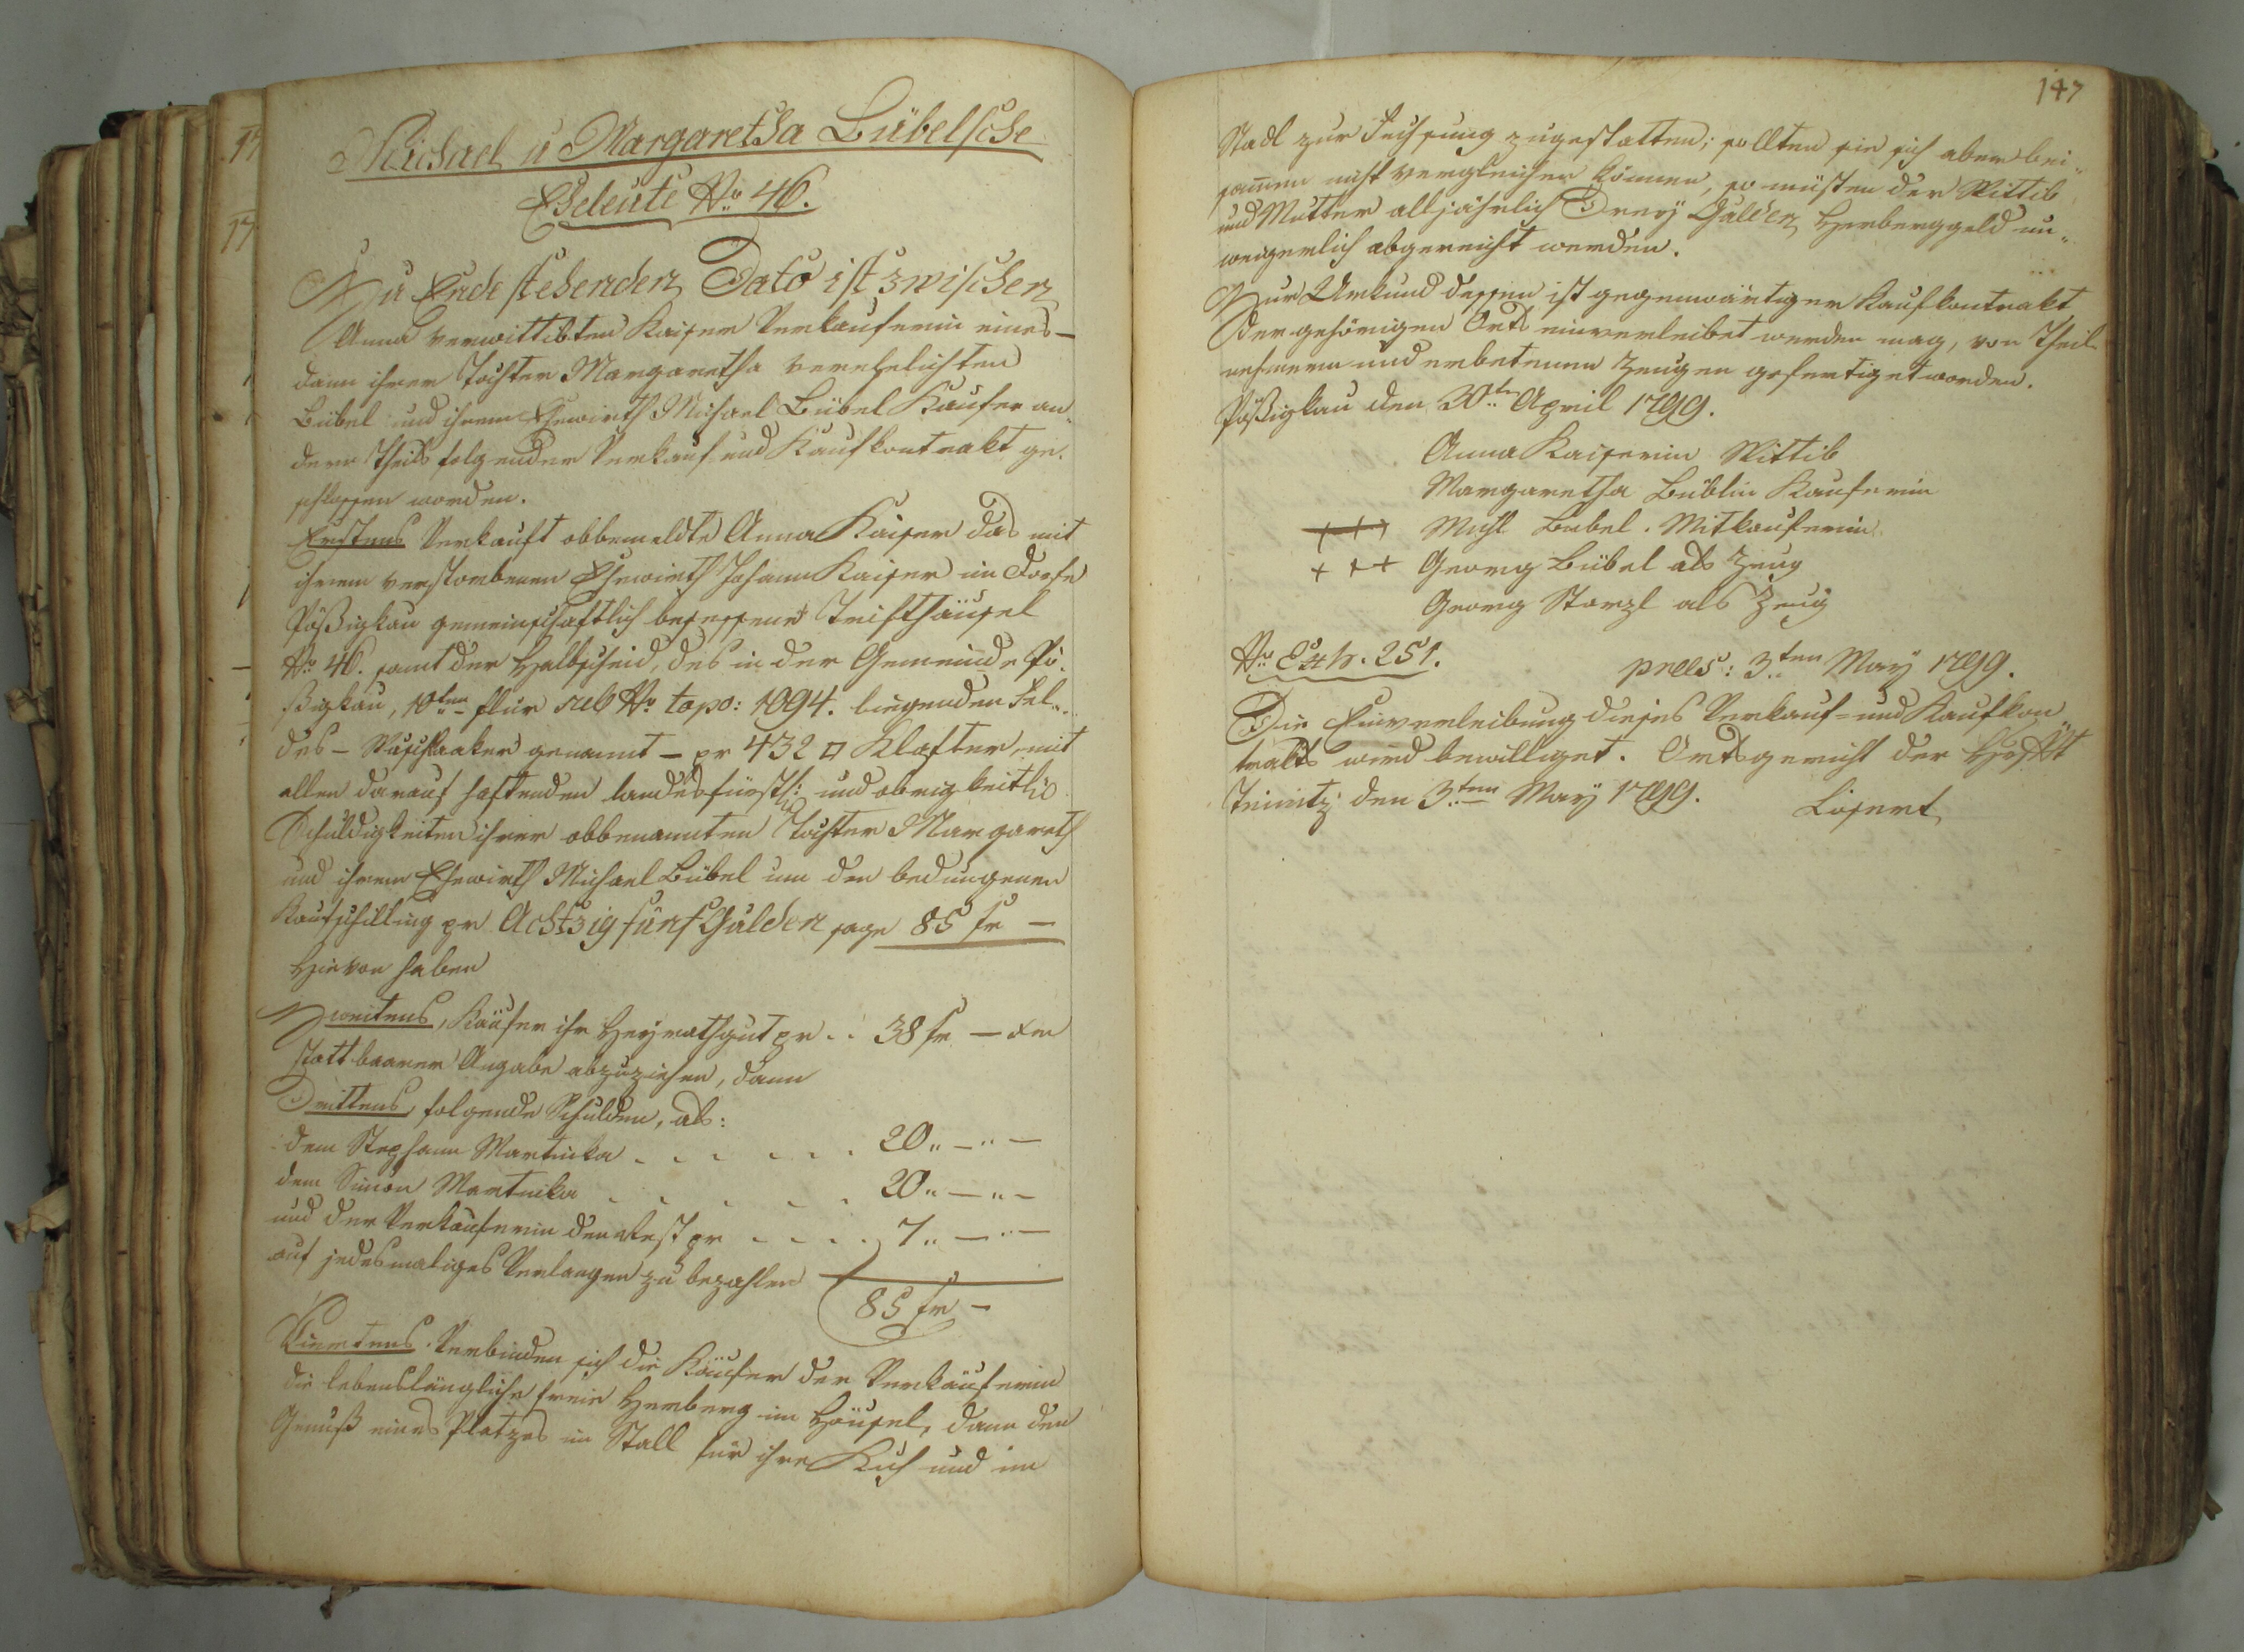 Michael u Margaretha Bübelsche
Eheleüte Nr 46.
Zu Ende stehenden Dato ist zwischen
Anna verwittibten Kaiser Verkauferin eines –
dann ihrer Tochter Margaretha verehelichten
Bübel und ihrem Ehewirth Michael Bübel Kaufer an„
dern Theils folgender Verkauf und Kaufkontrakt ge„
schlossen worden.
Erstens Verkauft obbemeldte Anna Kaiser das mit
ihrem verstorbenen Ehewirth Johann Kaiser im Dorfe
Pößigkau gemeinschaftlich besessene Trifthäusel
Nr 46. samt der Halbscheid, des in der Gemeinde Pö„
ßigkau, 10ten flur sub Nr topo: 1094. liegenden Fel„
des – genannt – pr 432 □ Klafter mit
allen darauf haftenden landesfürstl: und obrigkeitlich
Schuldigkeiten ihrer obbenannten Tochter Margareth
und ihrem Ehewirth Michael Bübel um den bedungenen
Kaufschilling pr Achtzig fünf Gulden sage 85 fr –
Hievon haben
Zweitens, Käufer ihr Heyrathgut pr . . 38 fr – xr
statt baarer Angabe abzuziehen, dann
Drittens, folgende Schulden, als:
dem Stephann Martinka . . . . . . 20„ – „ –
dem Simon Martinka . . . . . 20„ – „ –
und der Verkäuferin den Rest pr . . . . 7„ – „ –
auf jedesmaliges Verlangen zu bezahlen
85 fr –
Viertens. Verbinden sich die Käufer der Verkäuferin
die lebenslängliche freie Herberg im Häusel, dann den
Genuß eines Platzes im Stall für ihre Kuh und im
147
Stadl zur Fechsung zugestatten; sollten sie sich aber bei„
sammen nicht vergleichen können, so müsten der Wittib
und Mutter alljährlich Dreÿ Gulden Herberggeld un„
weigerlich abgereicht werden.
Zur Urkund dessen ist gegenwärtiger Kaufkontrakt
der gehörigen Orts einverleibet werden mag, von Theil„
nehmern und erbetenen Zeugen gefertiget worden.
Pößigkau den 30ten April 1799.
Anna Kaiserin Wittib
Margaretha Büblin Kauferin
+++ Michl Bubel. Mitkauferin
+++ Georg Bübel als Zeug
Georg Storzl als Zeug
Nr Exh. 251. praes: 3ten Maÿ 1799.
Die Einverleibung dieses Verkauf= und Kaufkon„
trakts wird bewilliget. Ortsgericht der Hrschft
Teinitz den 3ten Maÿ 1799. Lösert